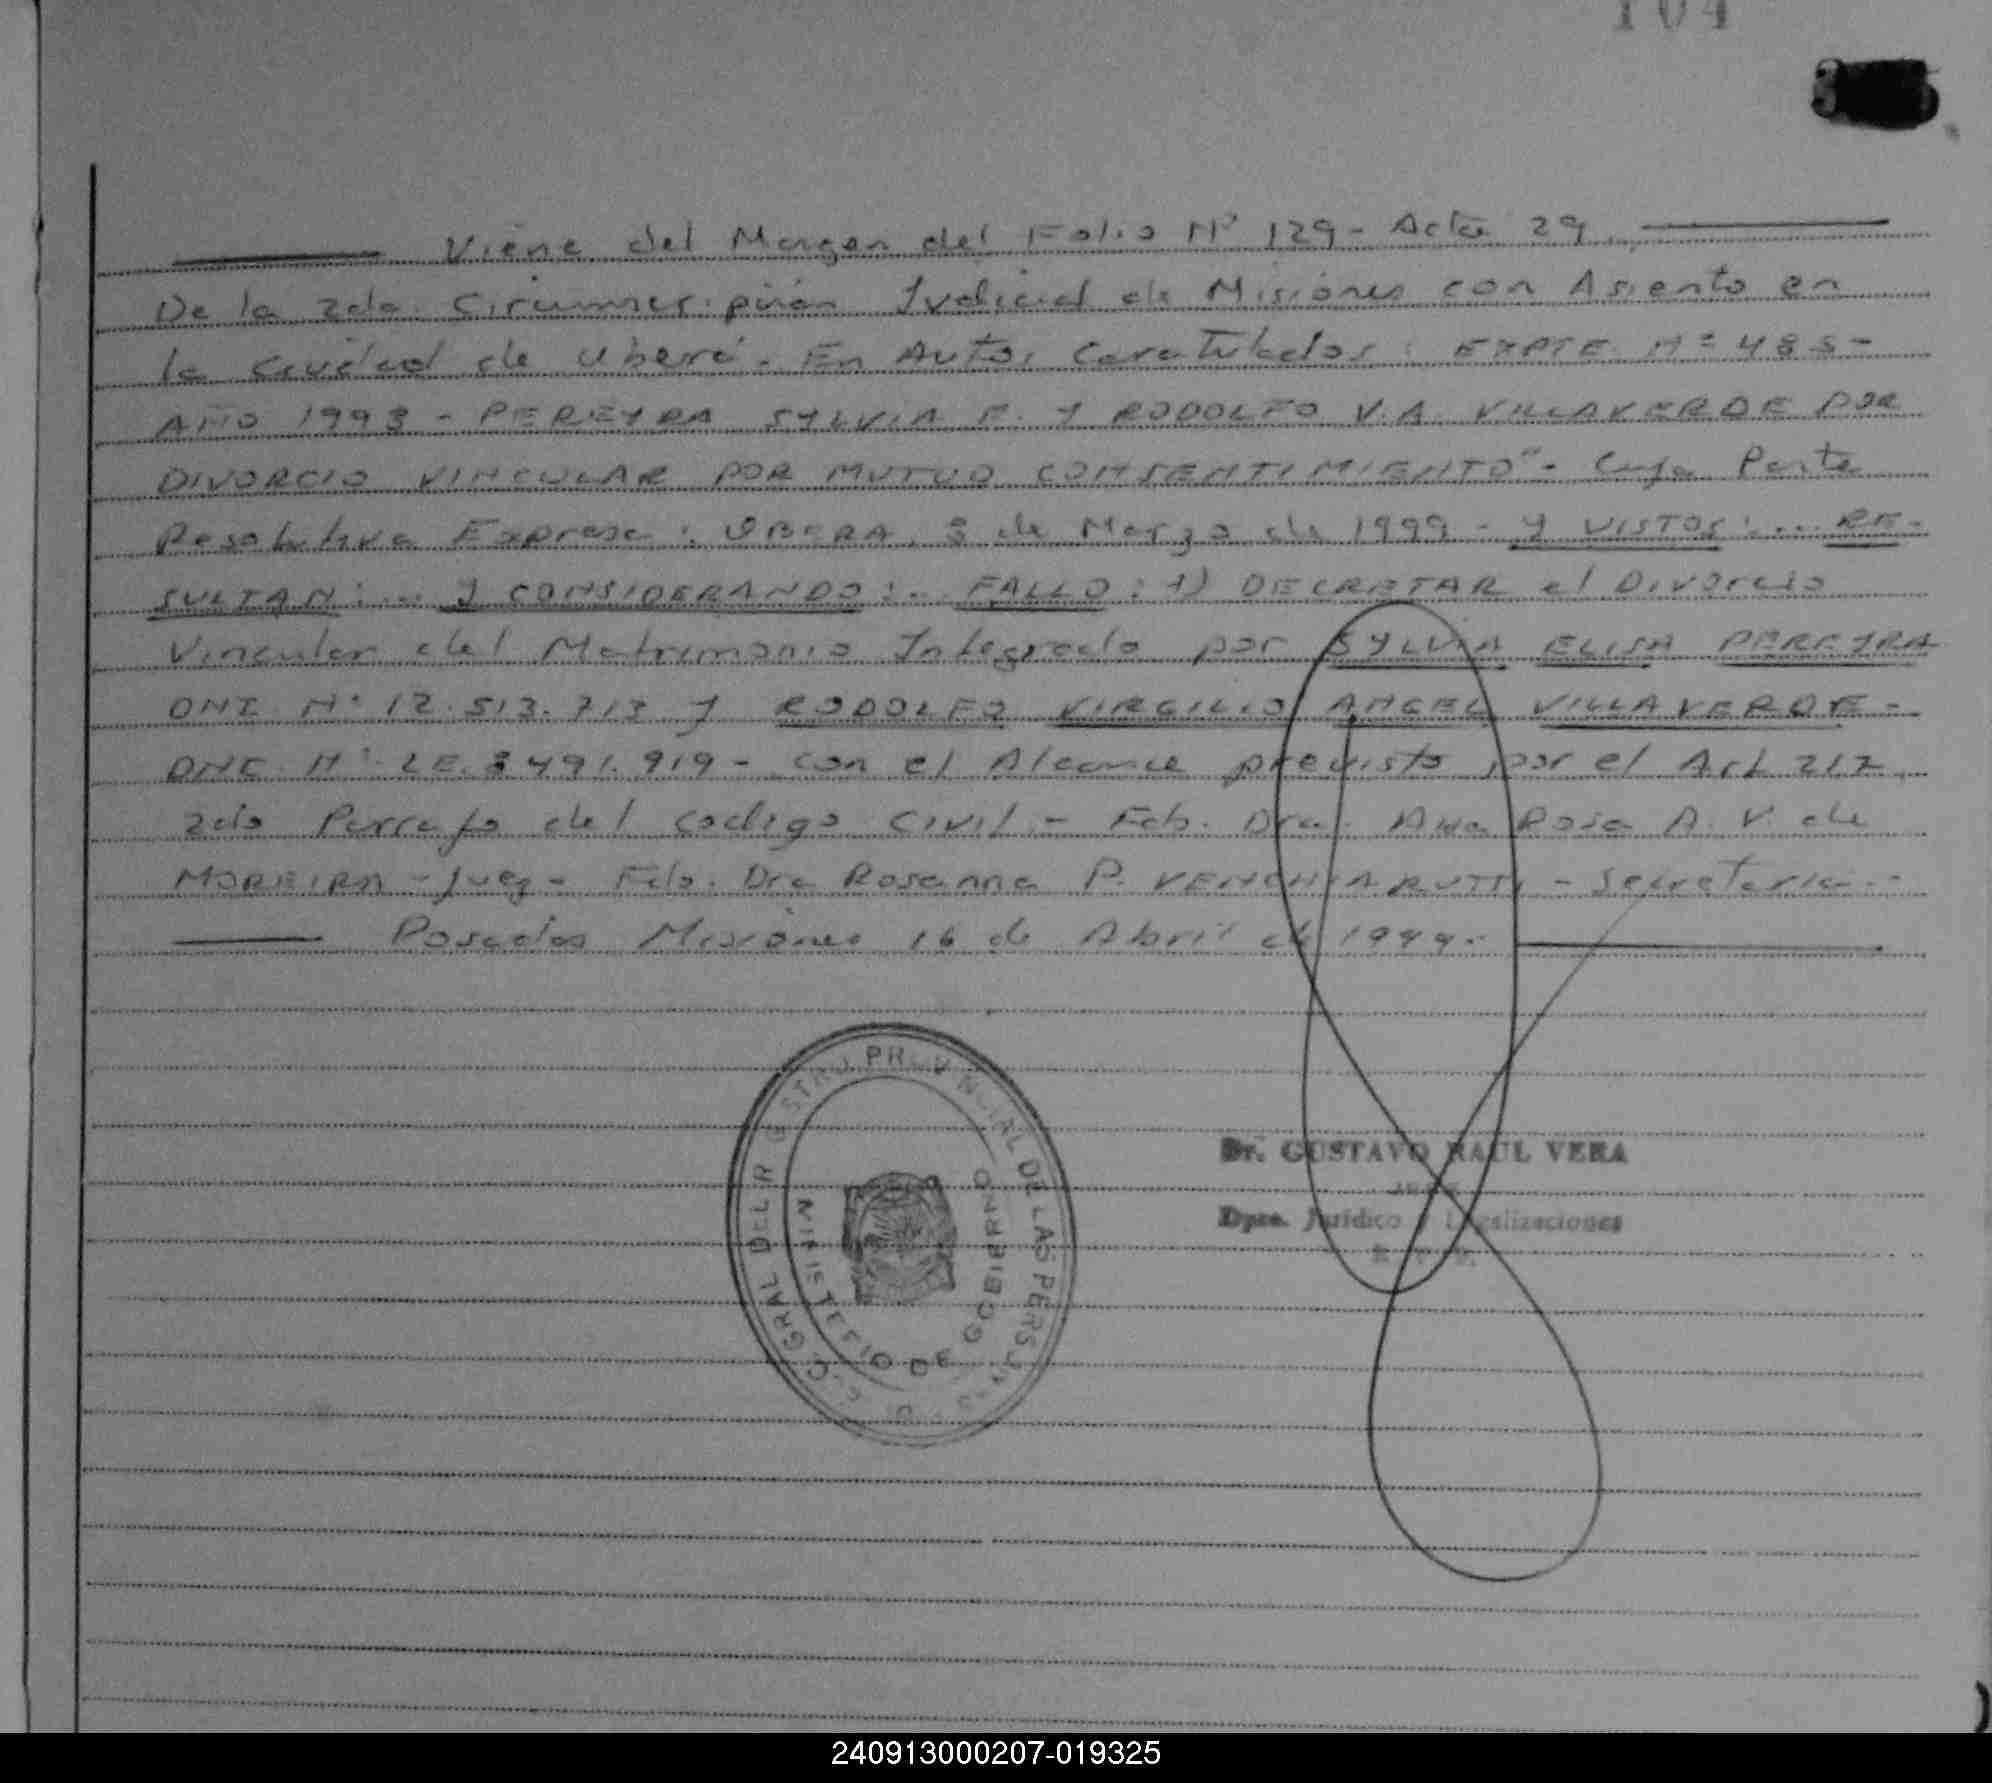 104
Viene del Margen del Folio Nº 129 - Acta 29
De la 2da. Circunscripción Judicial de Misiones con Asiento en
la Ciudad de Oberá. En Autos Caratulados: EXPTE. Nº 485-
AÑO 1993 - PEREYRA SYLVIA E. Y RODOLFO V.A. VILLAVERDE POR
DIVORCIO VINCULAR POR MUTUO CONSENTIMIENTO"- Cuya Parte
Resolutiva Expresa: OBERA, 3 de Marzo de 1999 - Y VISTOS:... RE-
SULTAN:... Y CONSIDERANDO:... FALLO: 1) DECRETAR el Divorcio
Vincular del Matrimonio Integrado por SYLVIA ELISA PEREYRA
DNI Nº 12.513.713 y RODOLFO VIRGILIO ANGEL VILLAVERDE -
Nº LE. 8491.919 - con el Alcance previsto por el Art 217
2do Parrafo del Codigo Civil - Fdo. Dra. Ana Rosa A. V. de
MOREIRA - Juez - Fdo. Dra Rosanna P. VENCHIARUTTI - Secretaria.-
Posadas Misiones 16 de Abril de 1999.-
Dr. GUSTAVO RAUL VERA
JEFE
Dpto. Jurídico y Legalizaciones
GRAL DEL REGISTRO PROVINCIAL DE LAS PERSONAS
MINISTERIO DE GOBIERNO
240913000207-019325